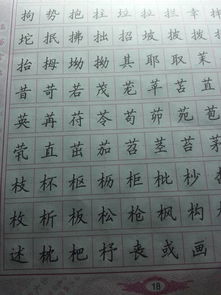 拘势抱拄垃拉拦幸
坨抵拂拙招坡披拨
抬拇坳拗其耶取茉
昔苛若茂苾苹苫苴
英苒苻苓苟茆苑苞
茕直茁茄苕茎苔茅
枝杯枢枥柜枇杪
枚析板松枪枫构
述枕杷杼丧或画
18